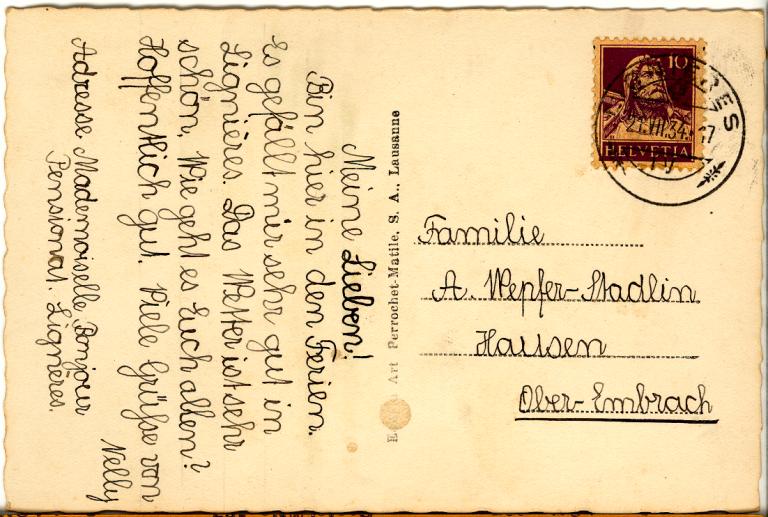 Meine Lieben!
Bin hier in den Ferien.
Es gefällt mir sehr gut in
Lignières. Das Wetter ist sehr
schön. Wie geht es Euch allen?
Hoffentlich gut. Viele Grüsse von
Nelly
Adresse Mademoiselle Bonjour
Pensionat. Lignières.
Art Perrochet-Matile, S. A., Lausanne
10
HELVETIA
21.VII.34.
Familie
A. Wepfer-Stadlin
Hausen
Ober-Embrach